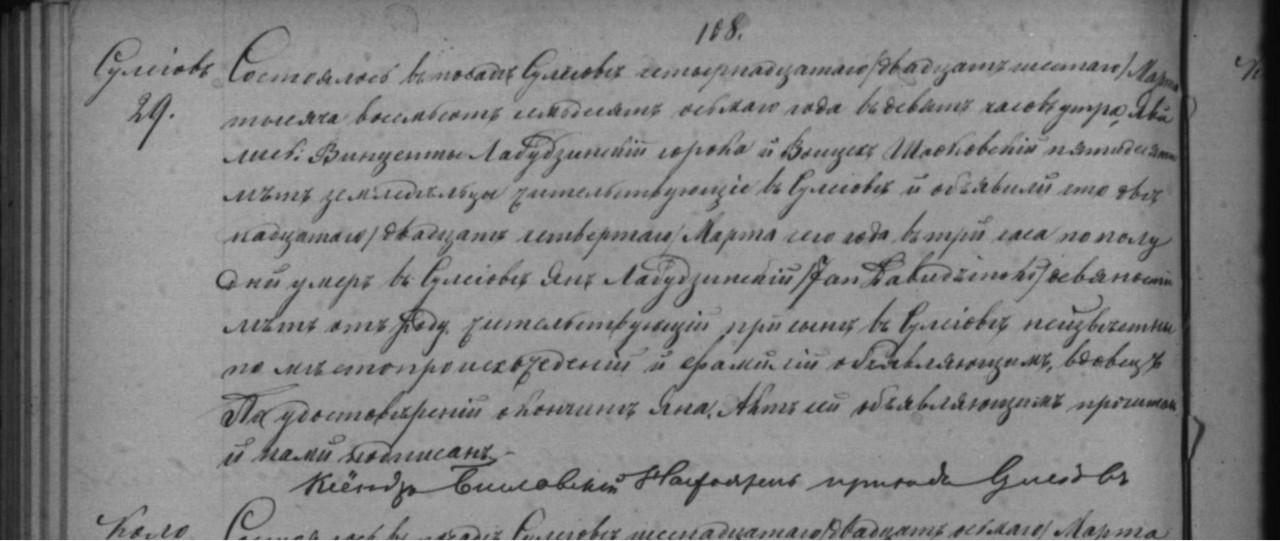 108.
Сулеіовъ Состоялось въ посадѣ Сулеіовѣ четырнадцатаго /двадцать шестаго/ Марта
29. тысяча восемьсотъ семьдесятъ осьмаго года въ девять часовъ утра, Яви
лись: Винценты Лабудзинскій сорока и Войцехъ пятидесяти
лѣтъ земледѣльцы жительствующіе въ Сулеіовѣ и объявили что двѣ
надцатаго /двадцать четвертаго/ Марта сего года въ три часа по полу
дни умеръ въ Сулеіовѣ Янъ Лабудзинскій /Jan Labudzinski/ девяносто
лѣтъ отъ роду жительствующій при сынѣ въ Сулеіовѣ неизвѣстны
по мѣстопроисхожденіи и фамиліи объявляющимъ, вдовецъ
По удостовѣреніи о кончинѣ Яна, Актъ сей объявляющимъ прочитанъ
и нами подписанъ.
Ксёндзъ Настоятель прихода Сулеіовъ
Коло Состоялось въ посадѣ Сулеіовѣ шестнадцатаго /двадцать осьмаго/ Марта